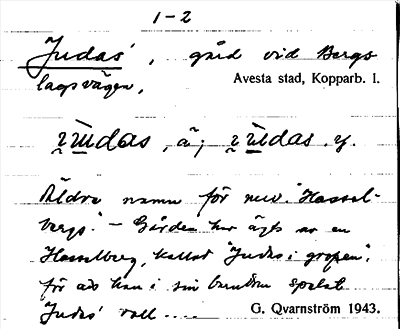 1-2
Judas', gård vid Bergs
lagsvägen,
Avesta stad, Kopparb. l.
Äldre namn för nuv. "Hassel-
bergs". - Gården har ägts av en
Hasselberg, kallad "Judas i gropen",
för att han i sin barndom spelat
Judas' roll ....
G. Qvarnström 1943.